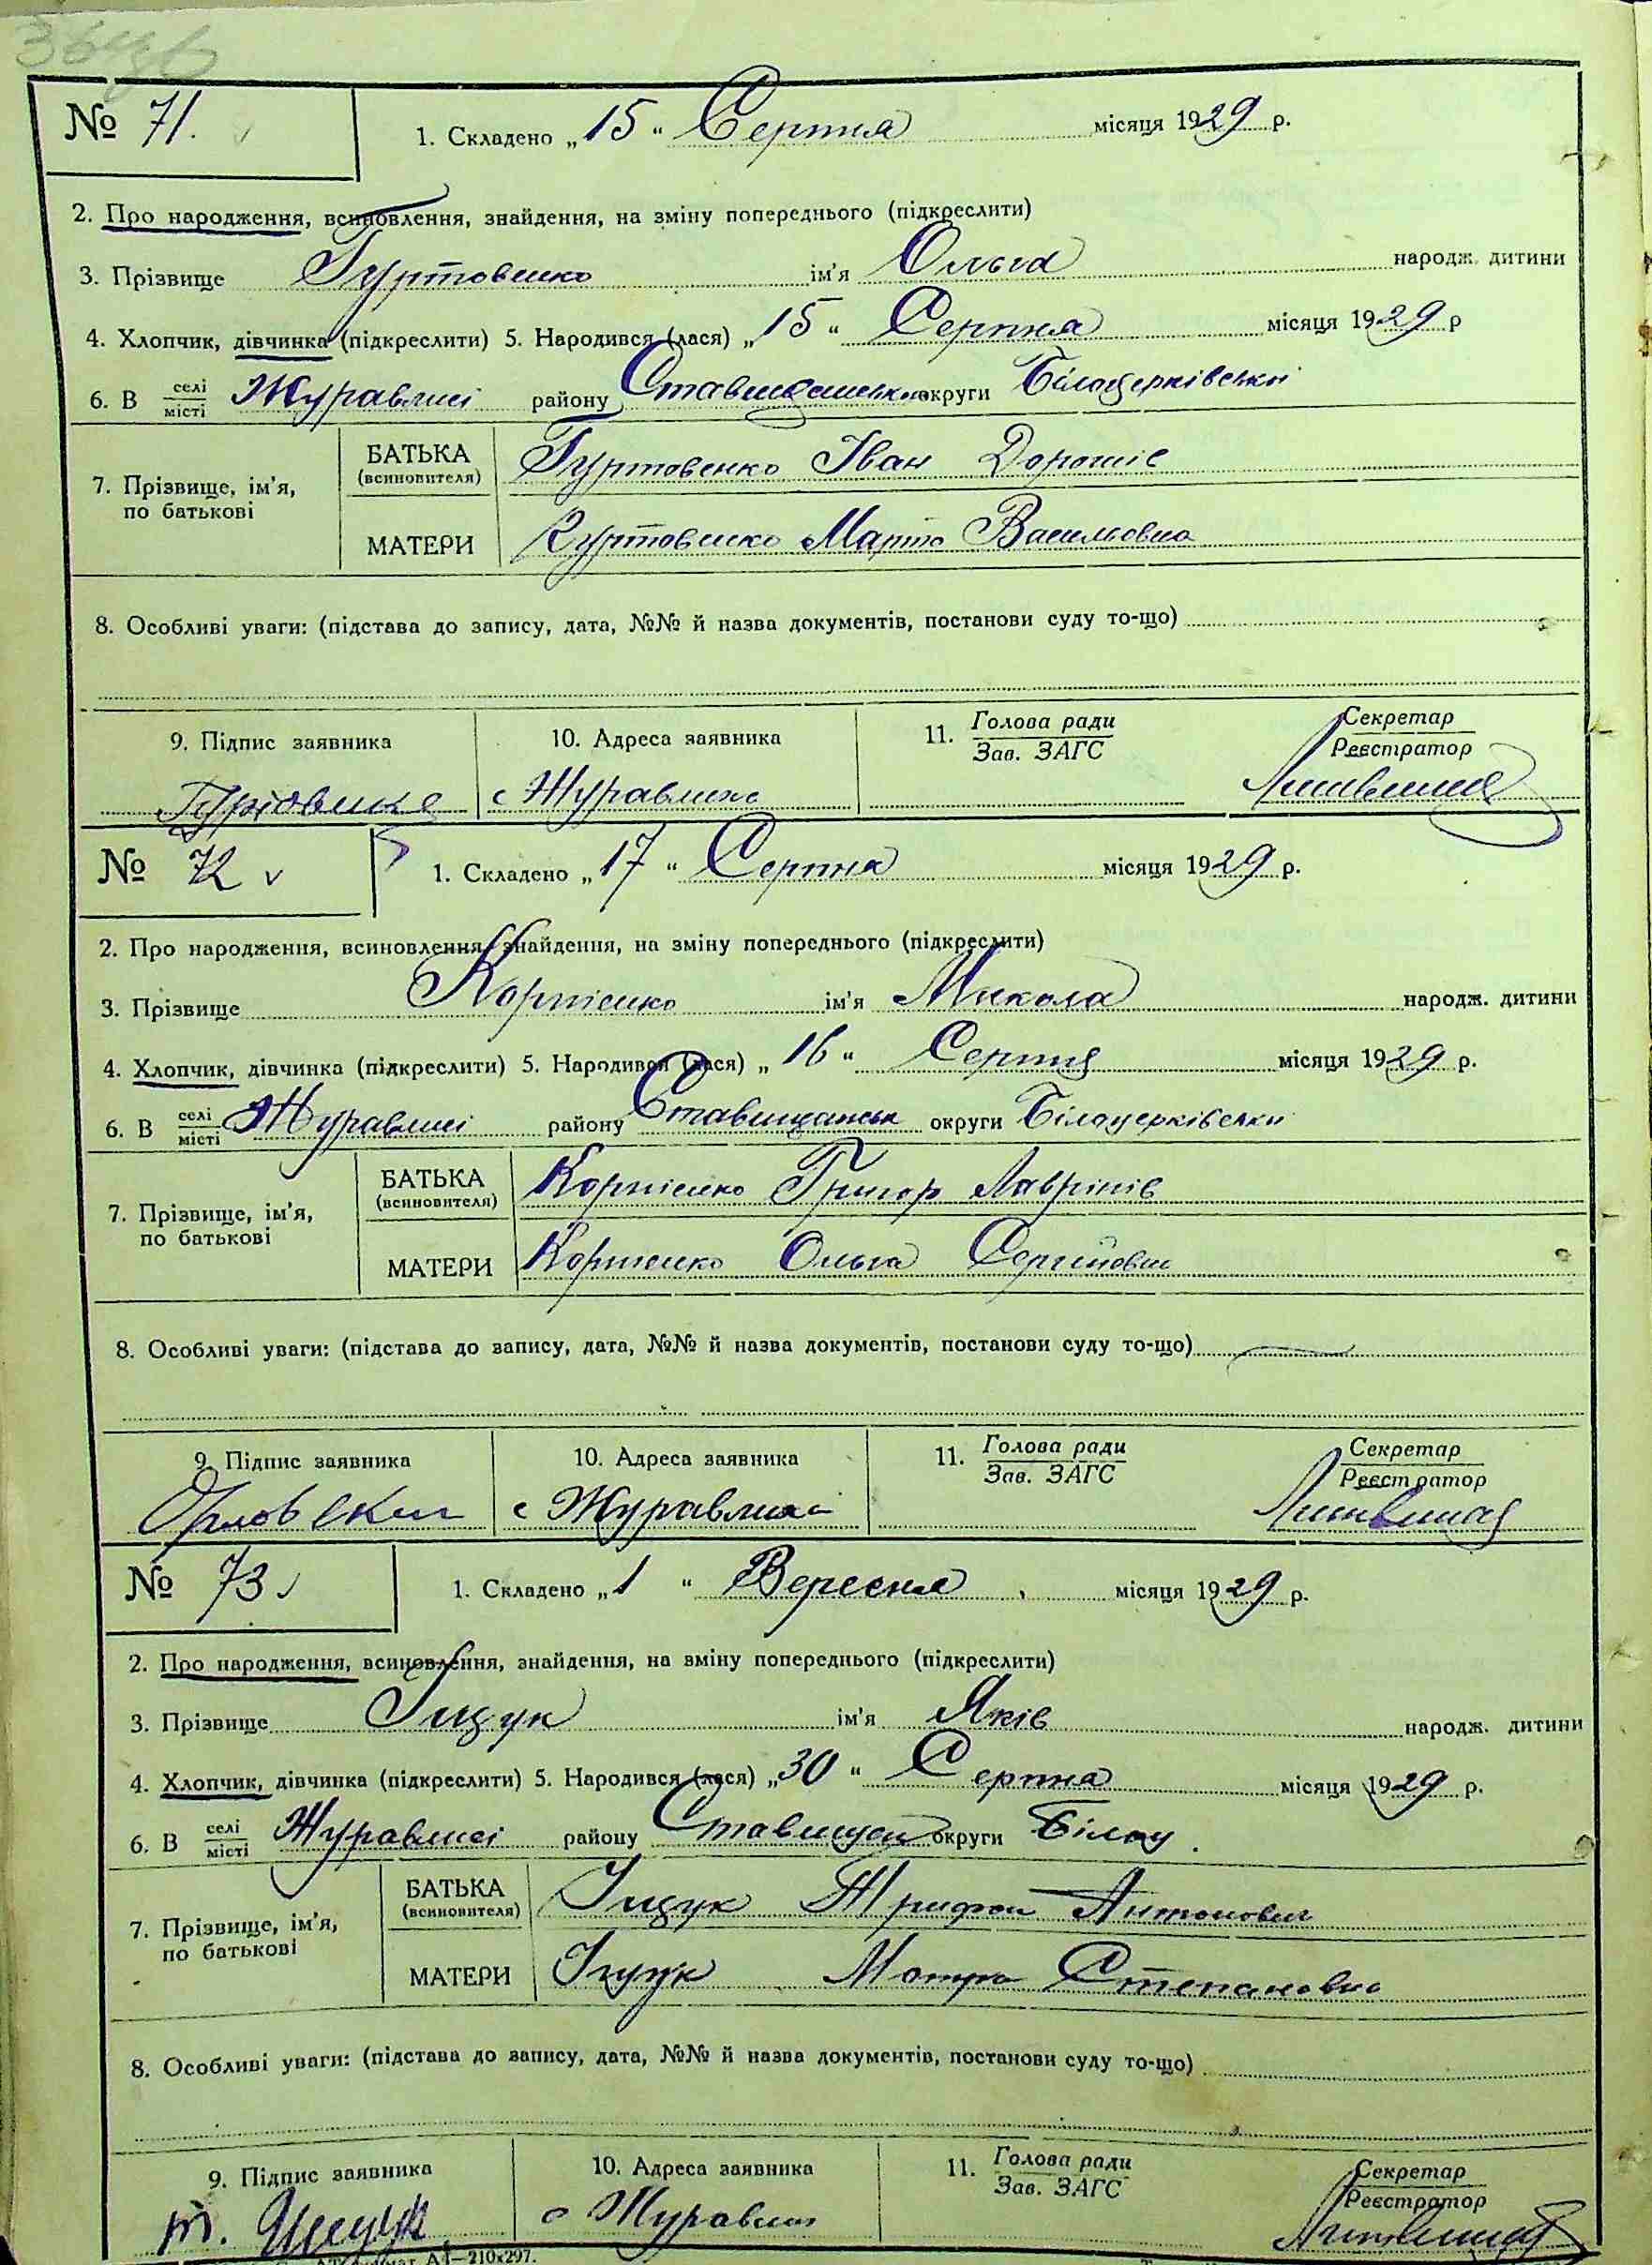 № 71.
1. Складено „15“ Серпня місяця 1929 р.
2. Про народження, всиновлення, знайдення, на зміну попереднього (підкреслити)
3. Прізвище Гуртовенко ім'я Ольга народж. дитини
4. Хлопчик, дівчинка (підкреслити) 5. Народився (лася) „15“ Серпня місяця 1929 р
6. В селі місті Журавлисі району округи Білоцерківськи
7. Прізвище, ім'я, по батькові
БАТЬКА (всиновителя) Гуртовенко Іван Дорошів
МАТЕРИ Гуртовенко Марта Васильовна
8. Особливі уваги: (підстава до запису, дата, №№ й назва документів, постанови суду то-що)
9. Підпис заявника 10. Адреса заявника 11. Голова ради Зав. ЗАГС Секретар Реєстратор
Гуртовенко с Журавлиха
№ 72 v
1. Складено „17“ Серпня місяця 1929 р.
2. Про народження, всиновлення, знайдення, на зміну попереднього (підкреслити)
3. Прізвище Корнієнко ім'я Микола народж. дитини
4. Хлопчик, дівчинка (підкреслити) 5. Народився (лася) „16“ Серпня місяця 1929 р.
6. В селі місті Журавлисі району Ставищанськ округи Білоцерківськи
7. Прізвище, ім'я, по батькові
БАТЬКА (всиновителя) Корнієнко Григор Лаврінів
МАТЕРИ Корнієнко Ольга Сергіївна
8. Особливі уваги: (підстава до запису, дата, №№ й назва документів, постанови суду то-що)
9. Підпис заявника 10. Адреса заявника 11. Голова ради Зав. ЗАГС Секретар Реєстратор
с Журавлиха
№ 73 v
1. Складено „1“ Вересня місяця 1929 р.
2. Про народження, всиновлення, знайдення, на зміну попереднього (підкреслити)
3. Прізвище Іщук ім'я Яків народж. дитини
4. Хлопчик, дівчинка (підкреслити) 5. Народився (лася) „30“ Серпня місяця 1929 р.
6. В селі місті Журавлисі району округи Білоц.
7. Прізвище, ім'я, по батькові
БАТЬКА (всиновителя) Іщук Трифон Антонович
МАТЕРИ Іщук Мотря Степановна
8. Особливі уваги: (підстава до запису, дата, №№ й назва документів, постанови суду то-що)
9. Підпис заявника 10. Адреса заявника 11. Голова ради Зав. ЗАГС Секретар Реєстратор
т. Іщук с Журавлих
А4—210x297.